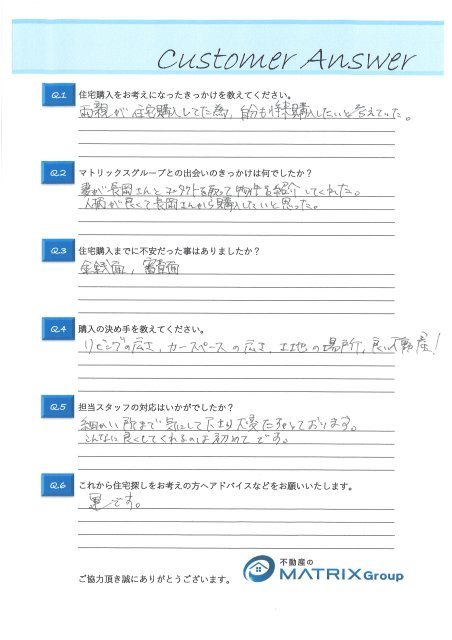 Customer Answer
Q.1 住宅購入をお考えになったきっかけを教えてください。
両親が住宅購入してた為、自分も将来購入したいと考えていた。
Q.2 マトリックスグループとの出会いのきっかけは何でしたか？
妻が長岡さんとコンタクトを取って物件を紹介してくれた。
人柄が良くて長岡さんから購入したいと思った。
Q.3 住宅購入までに不安だった事はありましたか？
金銭面，審査面
Q.4 購入の決め手を教えてください。
リビングの広さ，カースペースの広さ，土地の場所，良い不動産！
Q.5 担当スタッフの対応はいかがでしたか？
細かい所まで気にして下さり大変たすかっております。
こんなに良くしてくれるのは初めてです。
Q.6 これから住宅探しをお考えの方へアドバイスなどをお願いいたします。
運です。
ご協力頂き誠にありがとうございます。
不動産の
MATRIX Group